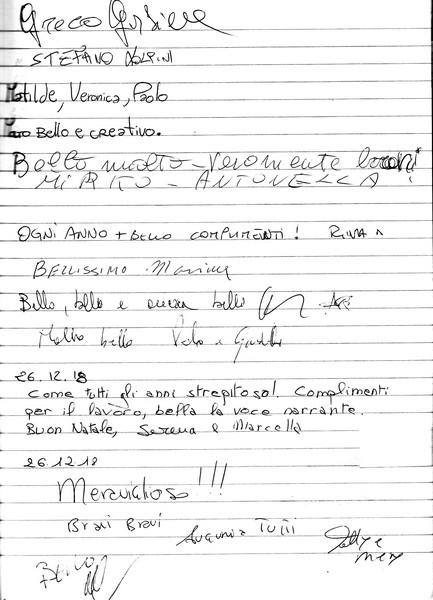 Greco
STEFANO VOLPINI
Matilde, Veronica, Paolo
BELLO e creativo.
Bello molto - veramente
MIRKO - ANTONELLA !
OGNI ANNO + BELLO COMPLIMENTI !
BELLISSIMO. Marina
Bello, bello e ancora bello
Molto bello
26.12.18
Come tutti gli anni strepitoso! Complimenti
per il lavoro, bella la voce narrante.
Buon Natale, Serena e Marcella
26.12.18
Meraviglioso !!!
Bravi Bravi
Tutti